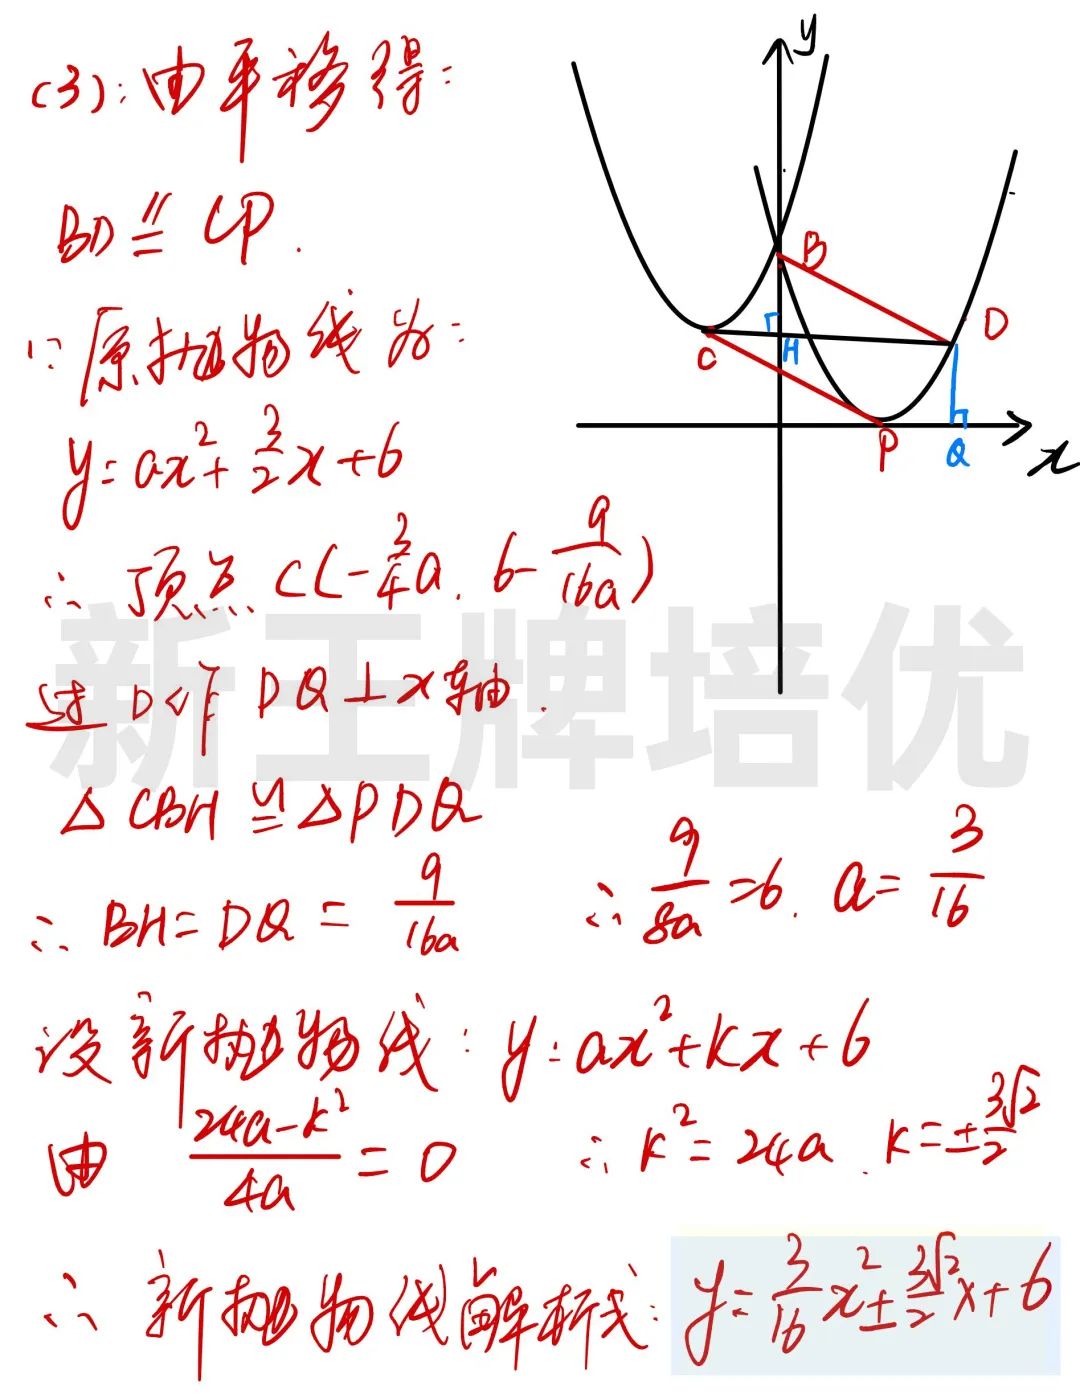 (3):由平移得:
BD ∥= CP.
∵原抛物线为:
y=ax²+3/2x+6
∴顶点C(-3/4a, 6-9/16a)
过D作DQ⊥x轴.
△CBH≌△PDQ
∴BH=DQ=9/16a
∴9/8a=6. a=3/16
设新抛物线:y=ax²+kx+6
由 (24a-k²)/4a=0
∴k²=24a. k=±3√2/2
∴新抛物线解析式:y=3/16x²±3√2/2x+6
y
B
D
C
H
P
Q
x
新王牌培优